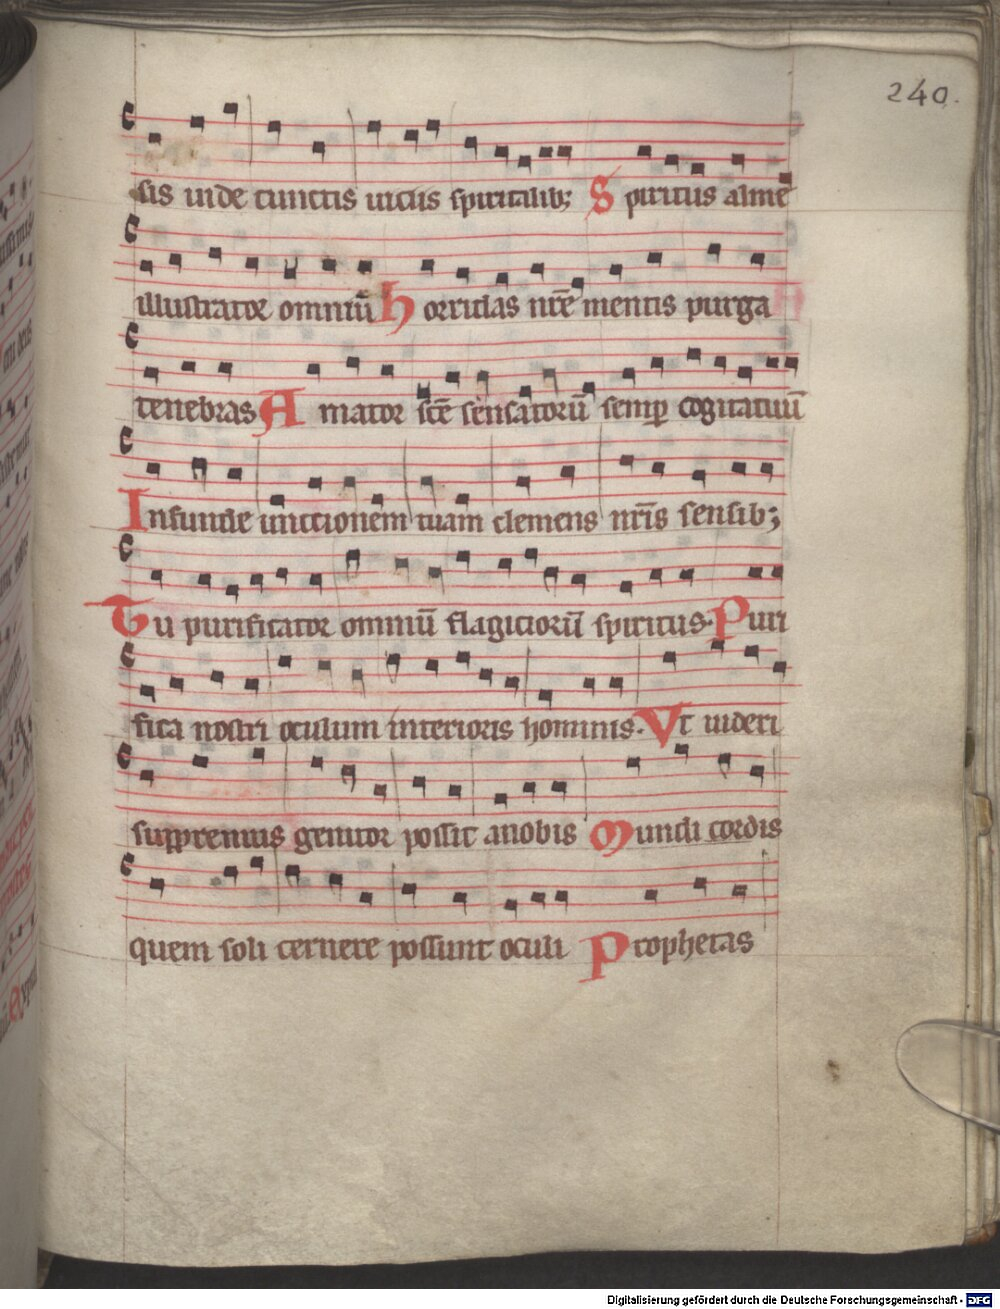 240.
sis inde cunctis uiciis spiritalib; Spiritus alme
illustrator omniū horridas nr̄e mentis purga
tenebras Amator sc̄e sensatorū semp cogitatuū
Infunde unctionem tuam clemens nr̄is sensib;
Tu purificator omniū flagiciorū spiritus. Puri
fica nostri oculum interioris hominis. Vt uideri
suppremus genitor possit anobis Mundi cordis
quem soli cernere possunt oculi Prophetas
Digitalisierung gefördert durch die Deutsche Forschungsgemeinschaft - DFG